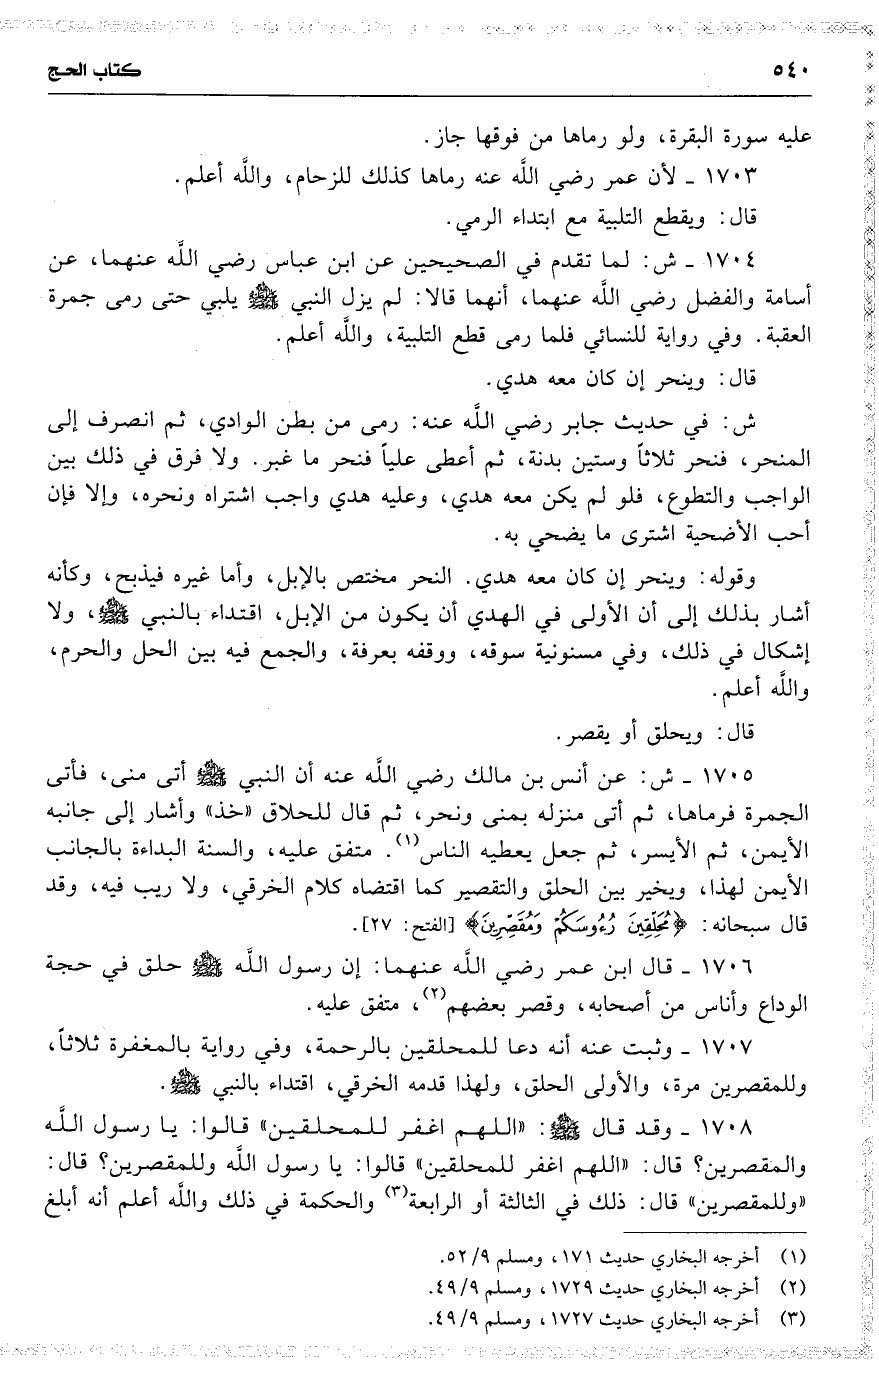 ٥٤٠ كتاب الحج
عليه سورة البقرة، ولو رماها من فوقها جاز.
١٧٠٣ ـ لأن عمر رضي اللَّه عنه رماها كذلك للزحام، واللَّه أعلم.
قال: ويقطع التلبية مع ابتداء الرمي.
١٧٠٤ ـ ش: لما تقدم في الصحيحين عن ابن عباس رضي اللَّه عنهما، عن
أسامة والفضل رضي اللَّه عنهما، أنهما قالا: لم يزل النبي ﷺ يلبي حتى رمى جمرة
العقبة. وفي رواية للنسائي فلما رمى قطع التلبية، واللَّه أعلم.
قال: وينحر إن كان معه هدي.
ش: في حديث جابر رضي اللَّه عنه: رمى من بطن الوادي، ثم انصرف إلى
المنحر، فنحر ثلاثاً وستين بدنة، ثم أعطى علياً فنحر ما غبر. ولا فرق في ذلك بين
الواجب والتطوع، فلو لم يكن معه هدي، وعليه هدي واجب اشتراه ونحره، وإلا فإن
أحب الأضحية اشترى ما يضحي به.
وقوله: وينحر إن كان معه هدي. النحر مختص بالإبل، وأما غيره فيذبح، وكأنه
أشار بذلك إلى أن الأولى في الهدي أن يكون من الإبل، اقتداء بالنبي ﷺ، ولا
إشكال في ذلك، وفي مسنونية سوقه، ووقفه بعرفة، والجمع فيه بين الحل والحرم،
واللَّه أعلم.
قال: ويحلق أو يقصر.
١٧٠٥ ـ ش: عن أنس بن مالك رضي اللَّه عنه أن النبي ﷺ أتى منى، فأتى
الجمرة فرماها، ثم أتى منزله بمنى ونحر، ثم قال للحلاق «خذ» وأشار إلى جانبه
الأيمن، ثم الأيسر، ثم جعل يعطيه الناس(١). متفق عليه، والسنة البداءة بالجانب
الأيمن لهذا، ويخير بين الحلق والتقصير كما اقتضاه كلام الخرقي، ولا ريب فيه، وقد
قال سبحانه: ﴿مُحَلِّقِينَ رُءُوسَكُمْ وَمُقَصِّرِينَ﴾ [الفتح: ٢٧].
١٧٠٦ ـ قال ابن عمر رضي اللَّه عنهما: إن رسول اللَّه ﷺ حلق في حجة
الوداع وأناس من أصحابه، وقصر بعضهم(٢)، متفق عليه.
١٧٠٧ ـ وثبت عنه أنه دعا للمحلقين بالرحمة، وفي رواية بالمغفرة ثلاثاً،
وللمقصرين مرة، والأولى الحلق، ولهذا قدمه الخرقي، اقتداء بالنبي ﷺ.
١٧٠٨ ـ وقد قال ﷺ: «اللهم اغفر للمحلقين» قالوا: يا رسول اللَّه
والمقصرين؟ قال: «اللهم اغفر للمحلقين» قالوا: يا رسول اللَّه وللمقصرين؟ قال:
«وللمقصرين» قال: ذلك في الثالثة أو الرابعة(٣) والحكمة في ذلك واللَّه أعلم أنه أبلغ
(١) أخرجه البخاري حديث ١٧١، ومسلم ٥٢/٩.
(٢) أخرجه البخاري حديث ١٧٢٩، ومسلم ٤٩/٩.
(٣) أخرجه البخاري حديث ١٧٢٧، ومسلم ٤٩/٩.